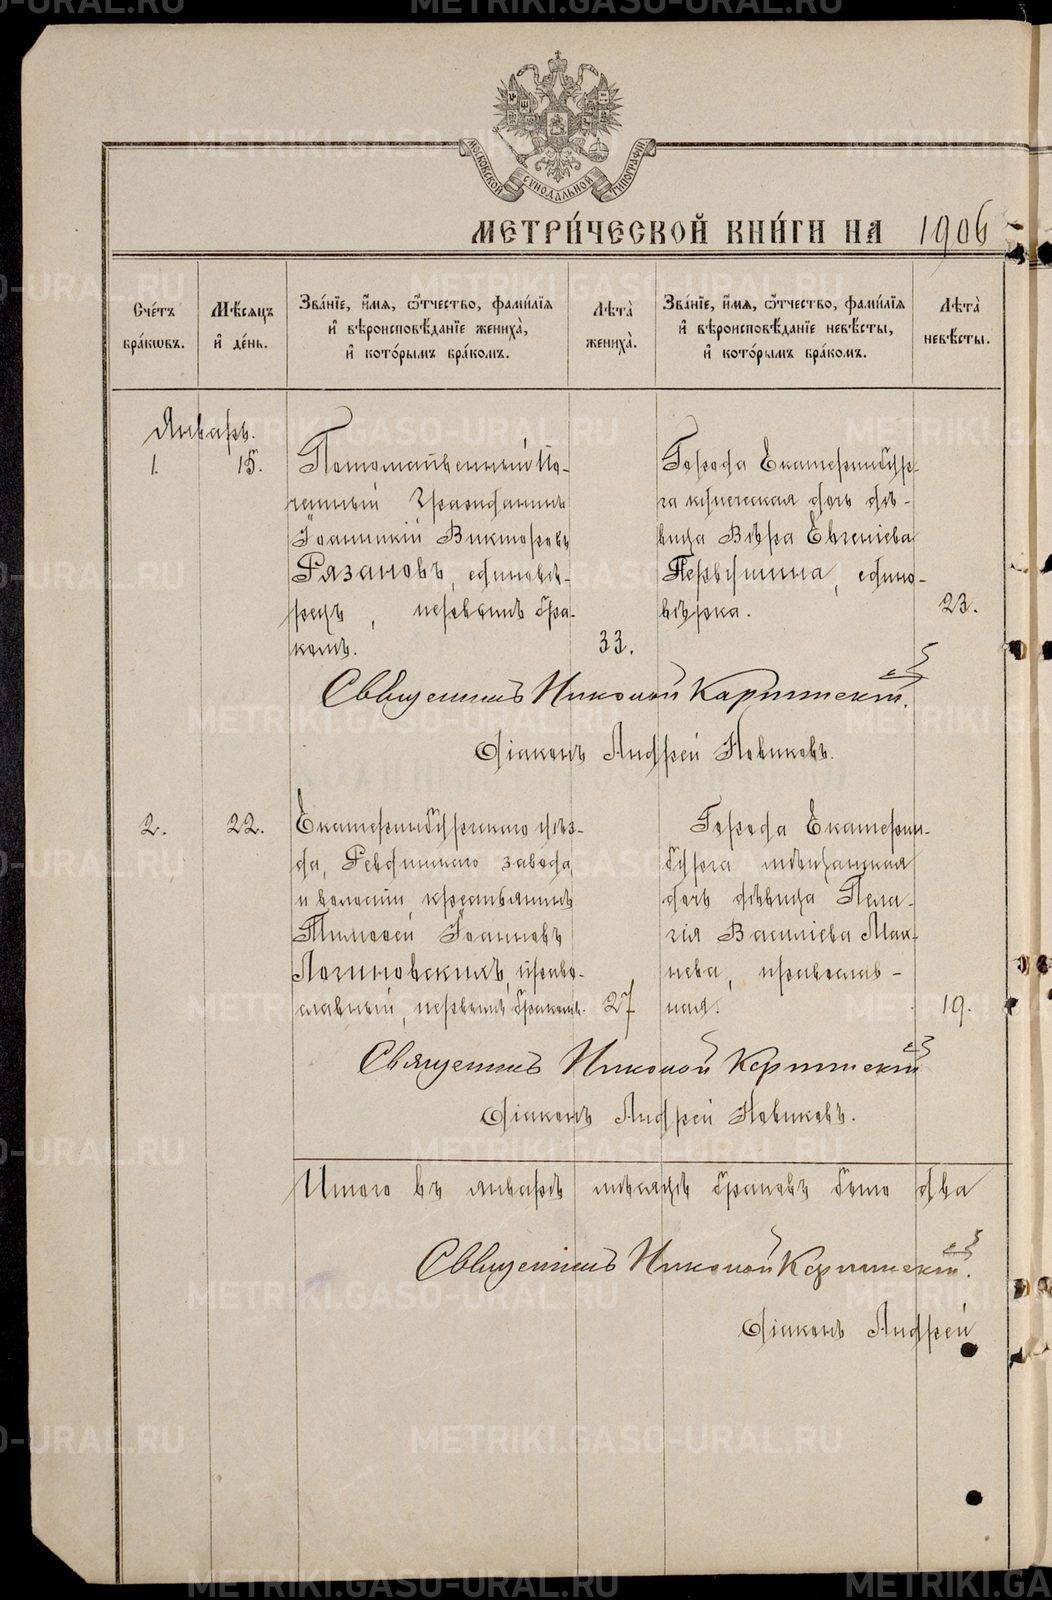 МОСКОВСКОЙ СѴНОДАЛЬНОЙ ТИПОГРАФІИ
МЕТРИ́ЧЕСКОЙ КНИ́ГИ НА 1906
Сче́тъ бра́кѡвъ.
Мѣ́сѧцъ и҆ де́нь.
Зва́нїе, и҆́мѧ, ѻ҆́тчество, фами́лїѧ и҆ вѣроисповѣ́данїе жениха̀, и҆ кото́рымъ бра́комъ.
Лѣ́та жениха̀.
Зва́нїе, и҆́мѧ, ѻ҆́тчество, фами́лїѧ и҆ вѣроисповѣ́данїе невѣ́сты, и҆ кото́рымъ бра́комъ.
Лѣ́та невѣ́сты.
Январь.
1.
15.
Потомственный По-
четный Гражданинъ
Іоанникій Викторовъ
Рязановъ, единовѣ-
рецъ, первымъ бра-
комъ.
33.
Города Екатеринбур-
га купеческая дочь дѣ-
вица Вѣра Евгеніева
Первушина, едино-
вѣрка.
23.
Священникъ Николай
Діаконъ Андрей Новиковъ.
2.
22.
Екатеринбургскаго уѣз-
да, Ревдинскаго завода
и волости крестьянинъ
Тимофей Іоанновъ
Логиновскихъ, право-
славный, первымъ бракомъ.
27
Города Екатерин-
бурга мѣщанская
дочь дѣвица Пела-
гія Василіева Мак-
нева, православ-
ная.
19.
Священникъ Николай
Діаконъ Андрей Новиковъ.
Итого въ январѣ мѣсяцѣ браковъ было два
Священникъ Николай
Діаконъ Андрей
METRIKI.GASO-URAL.RU